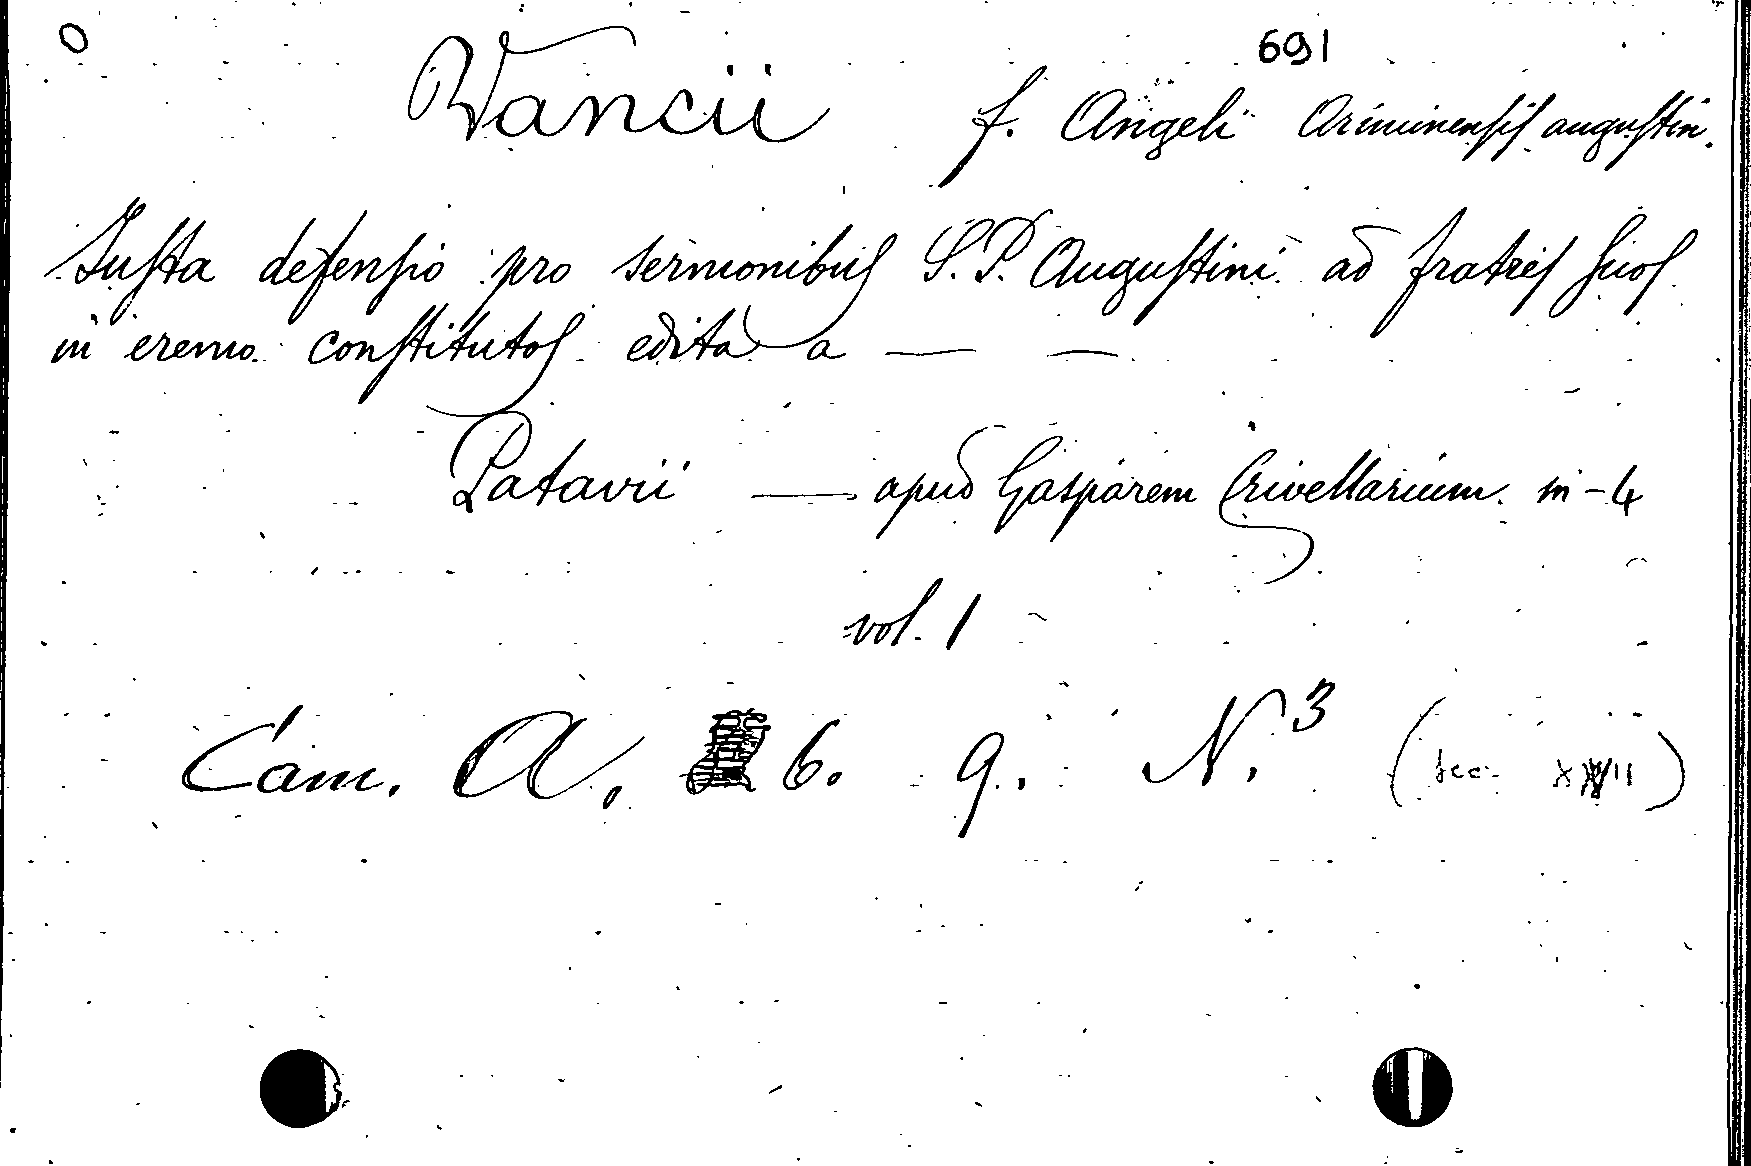 O 691
Vancii f. Angeli Ariminensis augustin.
Iusta defensio pro sermonibus S. P. Augustini ad fratres suos
in eremo constitutos edita a — —
Patavii — apud Gasparem Crivellarium in-4
vol. 1
Cam. A. 6. 9. N. 3 (sec. XVII)